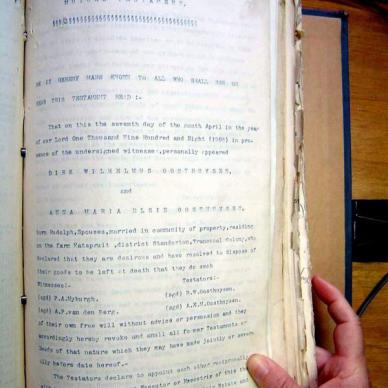 MUTUAL TESTAMENT,
§§§§§§§§§§§§§§§§§§§§§§§§§§§§
BE IT HEREBY MADE KNOWN TO ALL WHO SHALL SEE OR
READ THIS TESTAMENT READ:-
That on this the seventh day of the month April in the year
of our Lord One Thousand Nine Hundred and Eight (1908) in pre-
sence of the undersigned witnesses, personally appeared
DIRK WILHELMUS OOSTHUYSEN,
and
ANNA MARIA ELSIE OOSTHUYSEN,
born Rudolph, Spouses, married in community of property, residing
on the farm Katspruit, district Standerton, Transvaal Colony, who
declared that they are desirous and have resolved to dispose of
their goods to be left at death that they do such
Witnesses:- Testators:-
(sgd) P.A.Myburgh. (sgd) D.W.Oosthuysen.
(sgd) A.P.van den Berg. (sgd) A.E.M.Oosthuysen.
of their own free will without advice or persuasion and they
accordingly hereby revoke and annul all former Testaments or
Deeds of that nature which they may have made jointly or severa
ally before date hereof.--
The Testators declare to appoint each other reciprocally
Executor or Executrix of this their